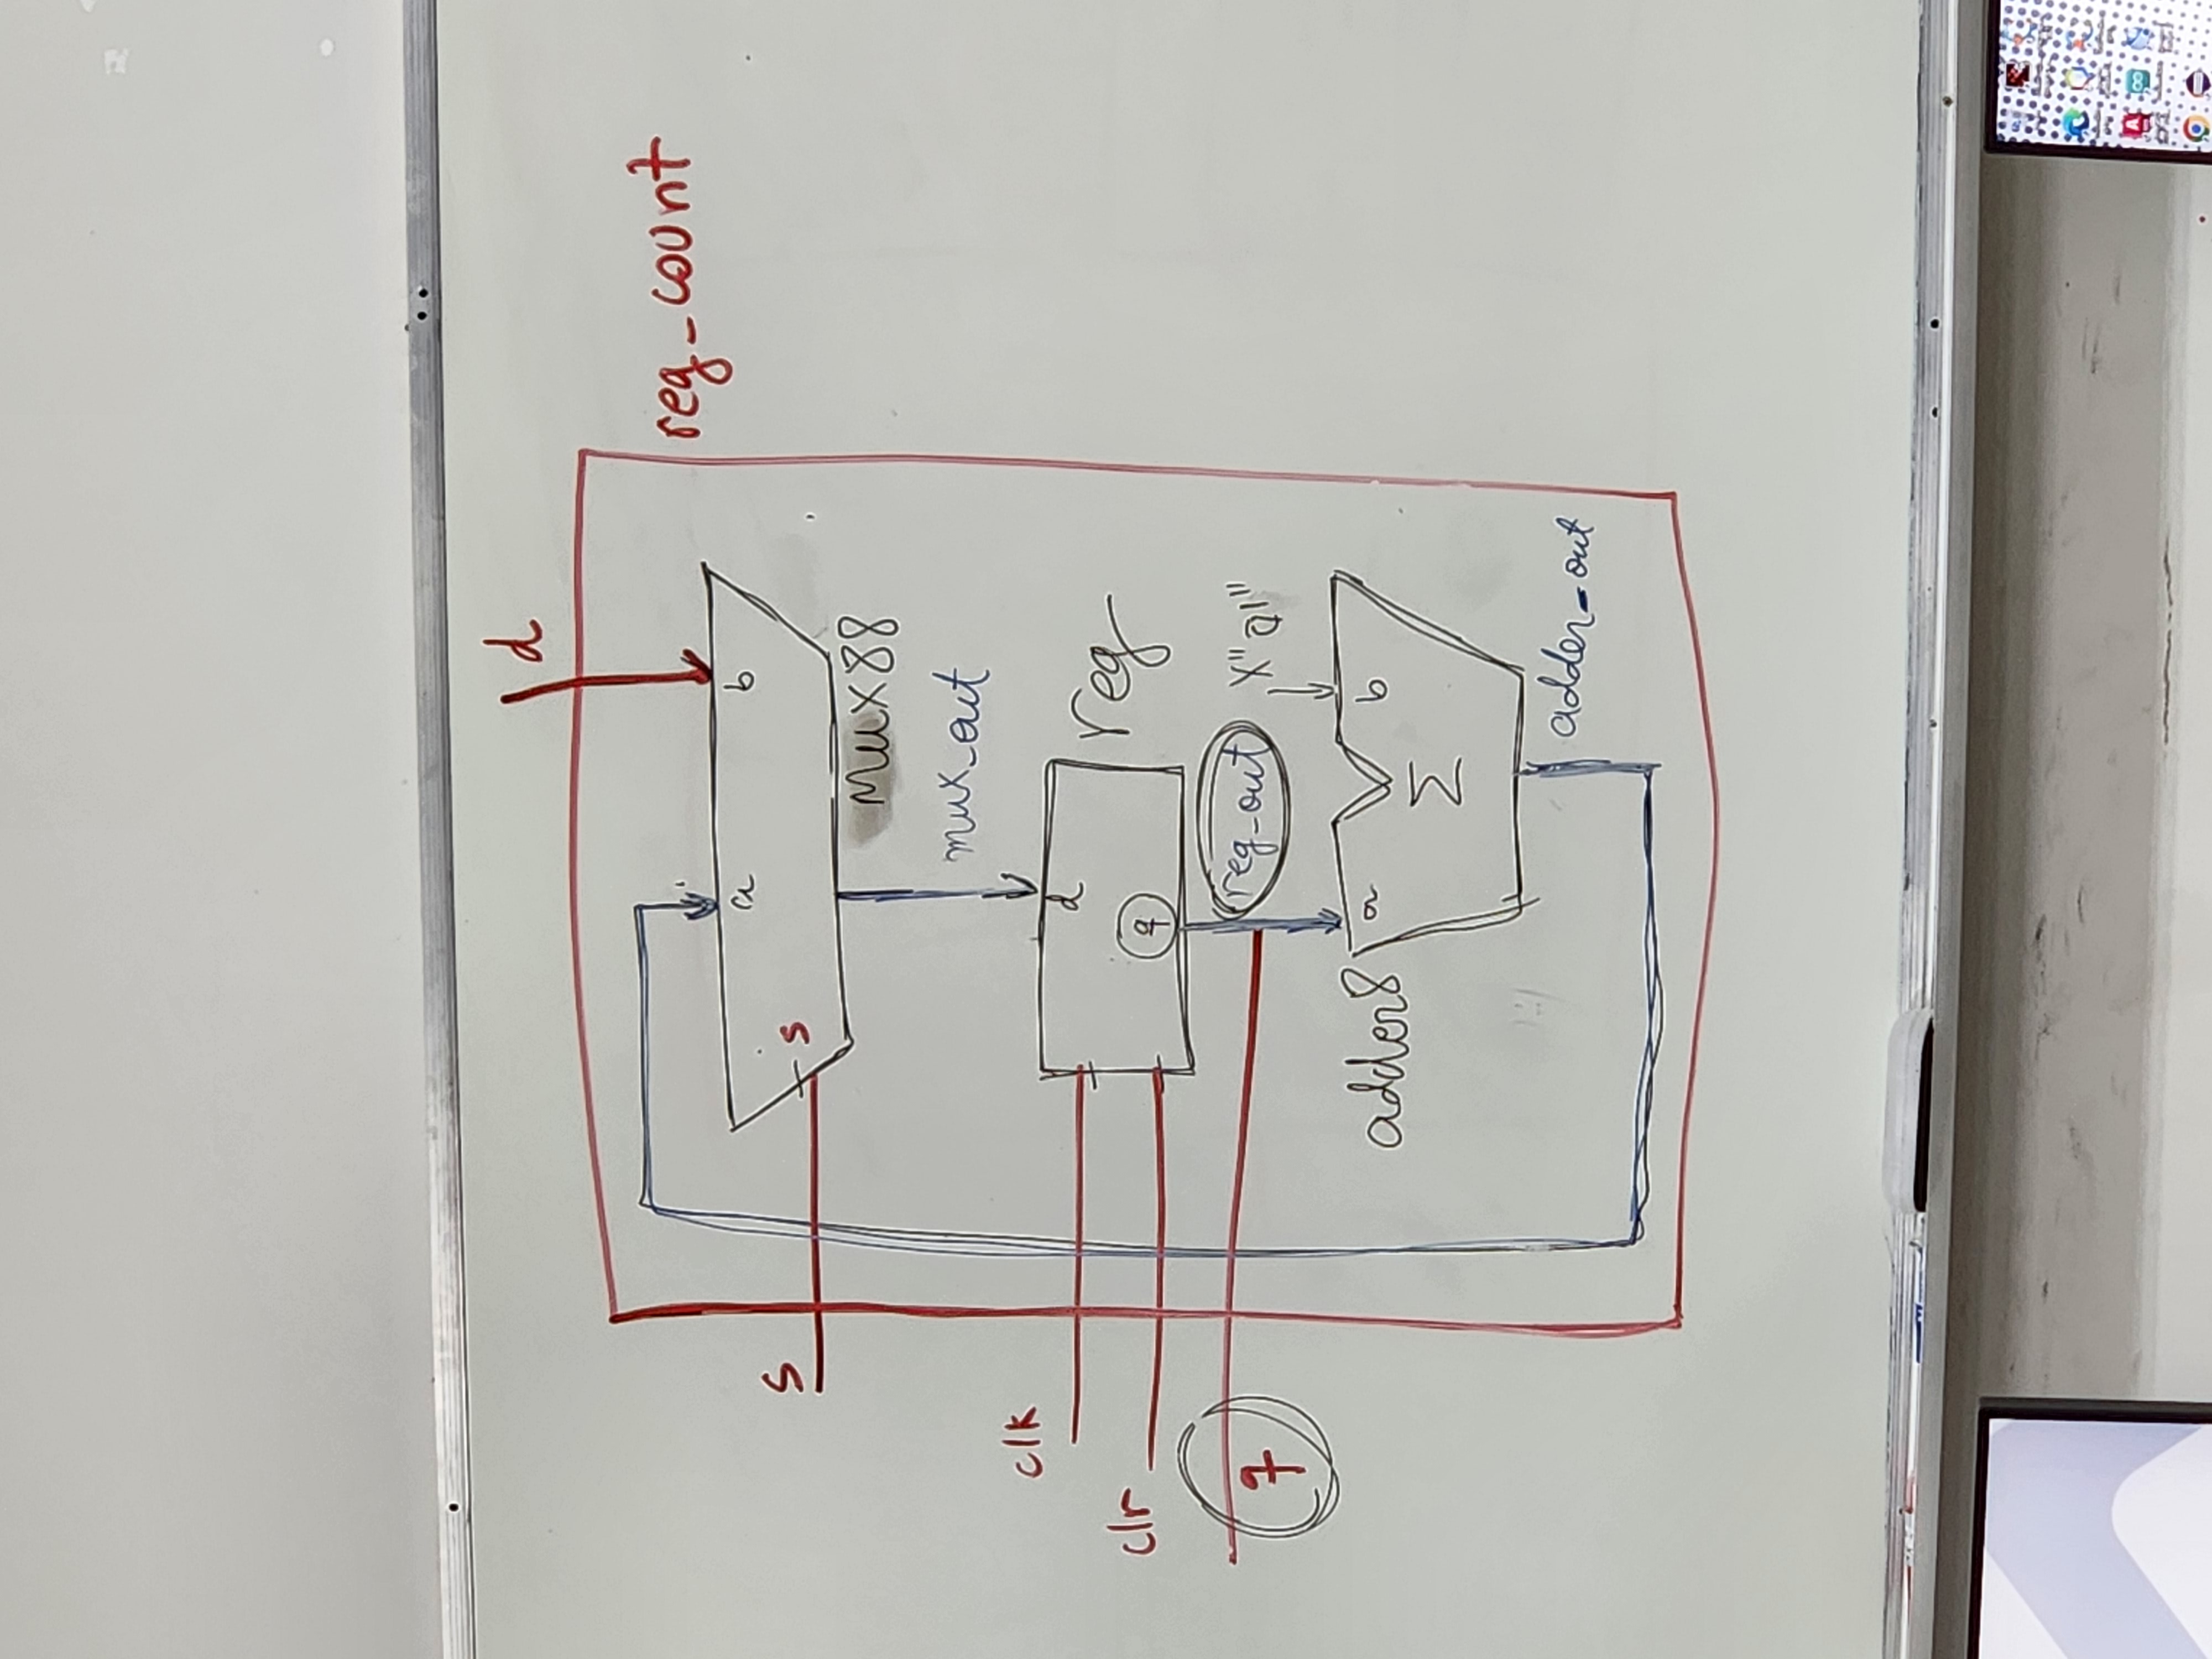 d
reg_count
a b
s
s
Mux88
mux_out
clk
d
reg
clr
q
reg_out
x"01"
q
adder8
a b
Σ
adder_out